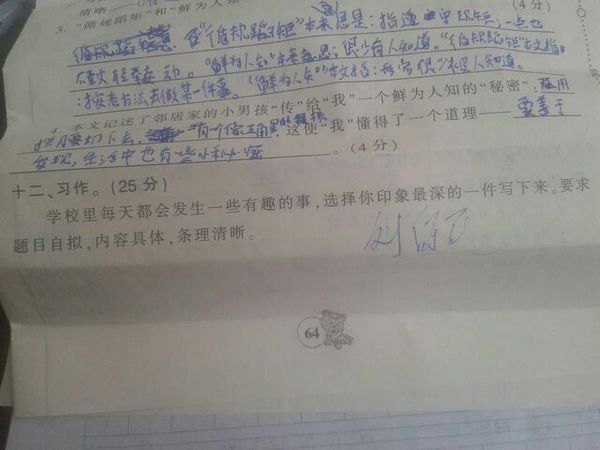 清晰——(
3. “循规蹈矩”和“鲜为人知
(4分)
“循规蹈矩”本来意思是:指遵守规矩,一点也
不敢轻举妄动。“鲜为人知”本来意思:很少有人知道。“循规蹈矩”本文指
:按老方法去做某一件事。“鲜为人知”本文指:
很少
人知道。
4. 本文记述了邻居家的小男孩“传”给“我”一个鲜为人知的“秘密”:
切下去,
这使“我”懂得了一个道理——要善于
发现,生活中也有些小秘密。(4分)
十二、习作。(25分)
学校里每天都会发生一些有趣的事,选择你印象最深的一件写下来。要求
题目自拟,内容具体,条理清晰。
64